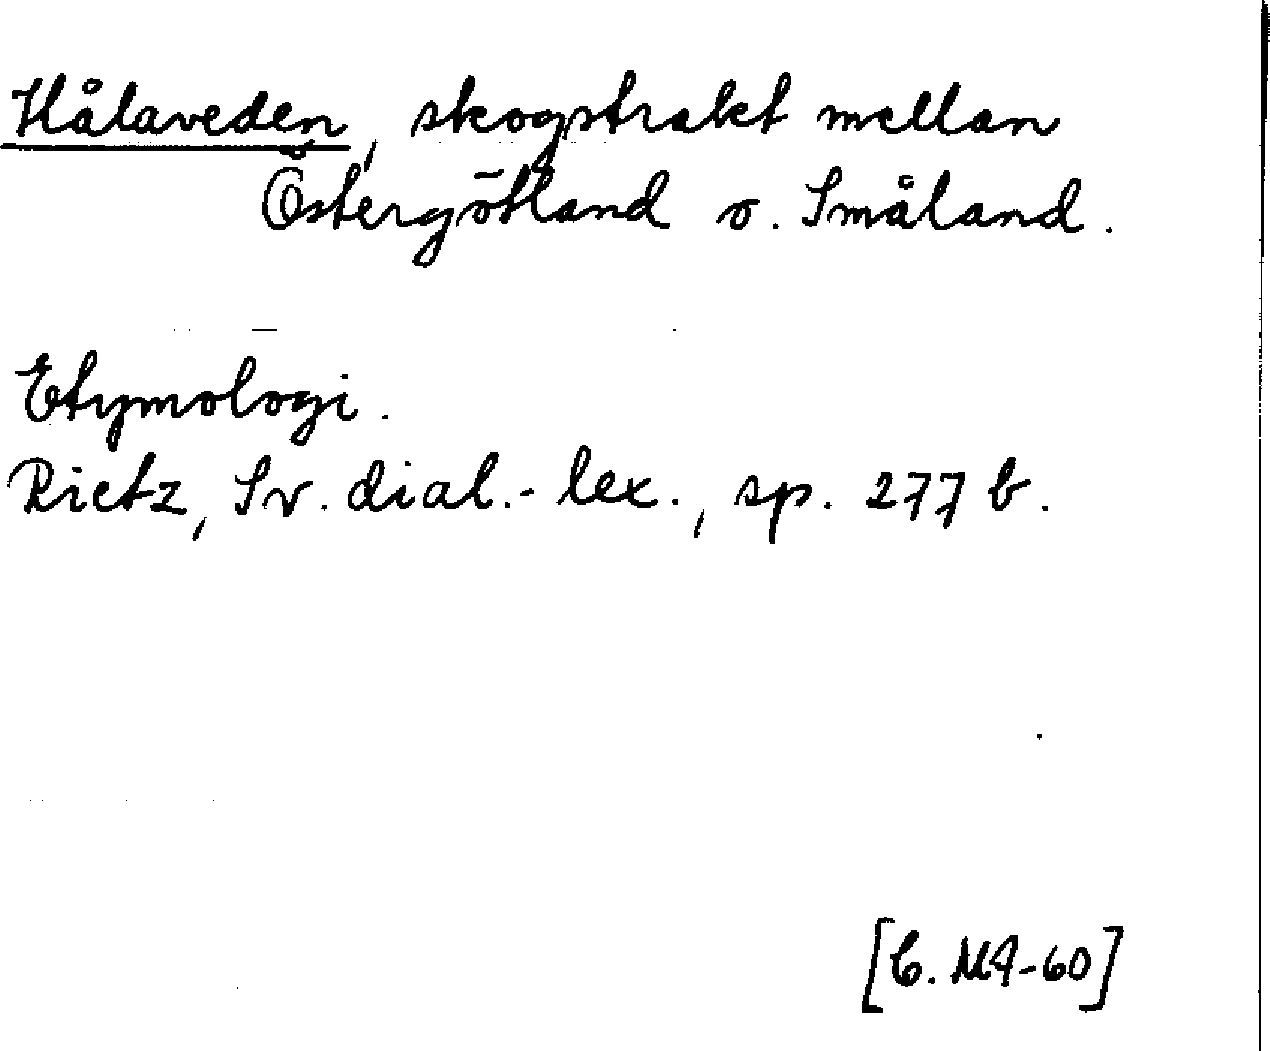 Hålaveden, skogstrakt mellan
Östergötland o. Småland.
Etymologi.
Rietz, Sv. dial.-lex., sp. 277 b.
[C. M9-60]